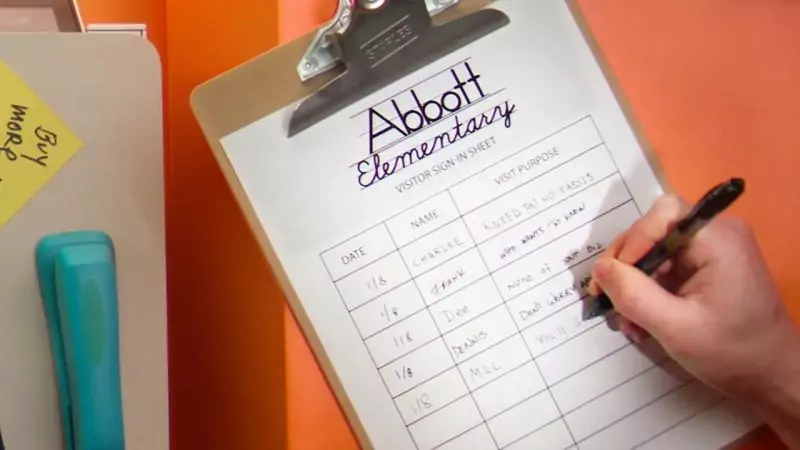 BUY
MORE
STAPLES
Abbott
Elementary
VISITOR SIGN-IN SHEET
DATE NAME VISIT PURPOSE
1/8 CHARLIE
1/8 FRANK WHO WANTS TO KNOW
1/8 DEE NONE OF YOUR BIZ
1/8 DENNIS DON'T WORRY
1/8 MAC